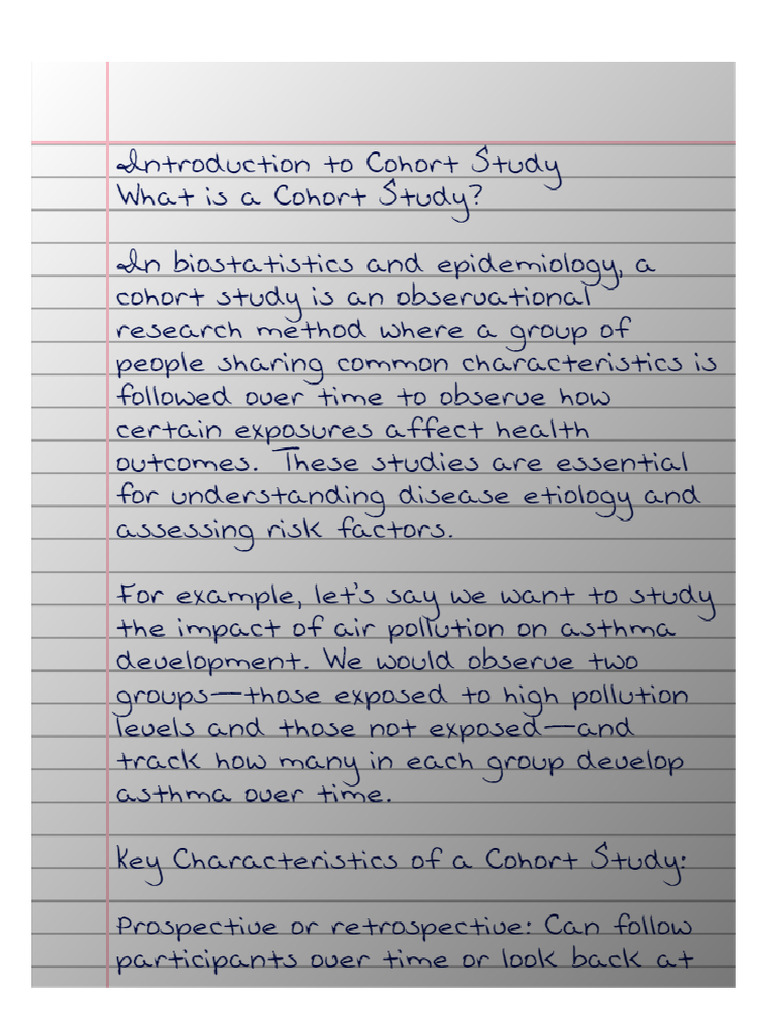 Introduction to Cohort Study
What is a Cohort Study?
In biostatistics and epidemiology, a
cohort study is an observational
research method where a group of
people sharing common characteristics is
followed over time to observe how
certain exposures affect health
outcomes. These studies are essential
for understanding disease etiology and
assessing risk factors.
For example, let's say we want to study
the impact of air pollution on asthma
development. We would observe two
groups—those exposed to high pollution
levels and those not exposed—and
track how many in each group develop
asthma over time.
Key Characteristics of a Cohort Study:
Prospective or retrospective: Can follow
participants over time or look back at